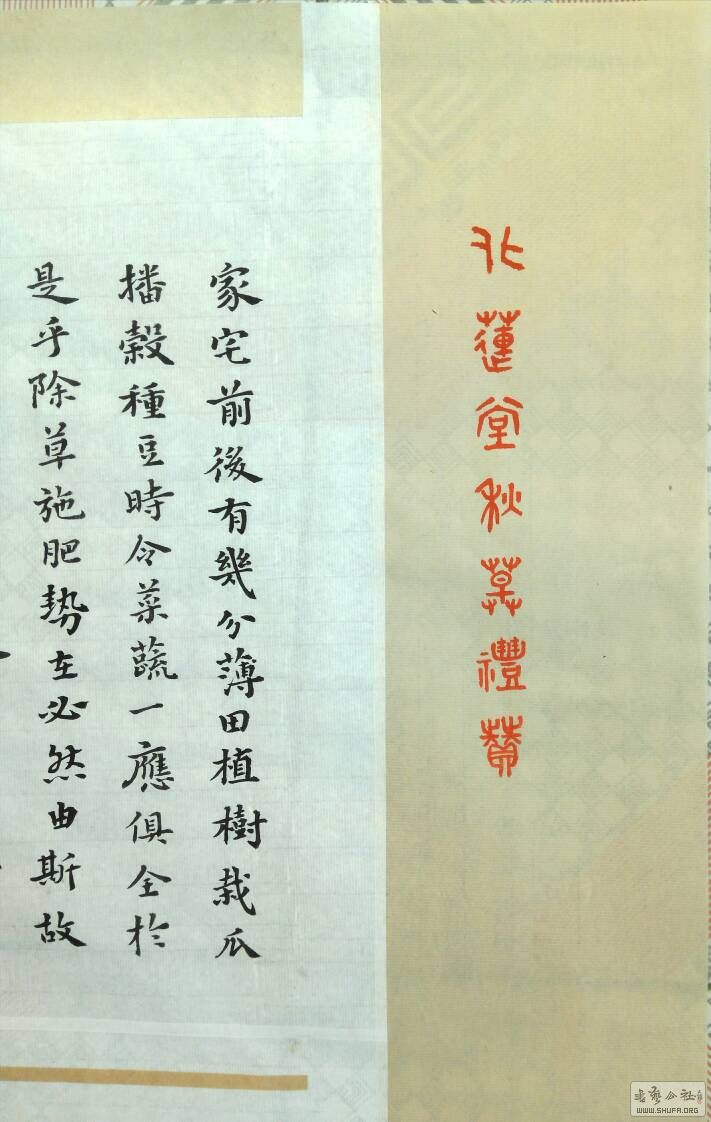 蓮堂秋禮贊
家宅前後有幾分薄田植樹栽瓜
播穀種豆時令菜蔬一應俱全於
是乎除草施肥勢在必然由斯故
書藝公社
WWW.SHUFA.ORG